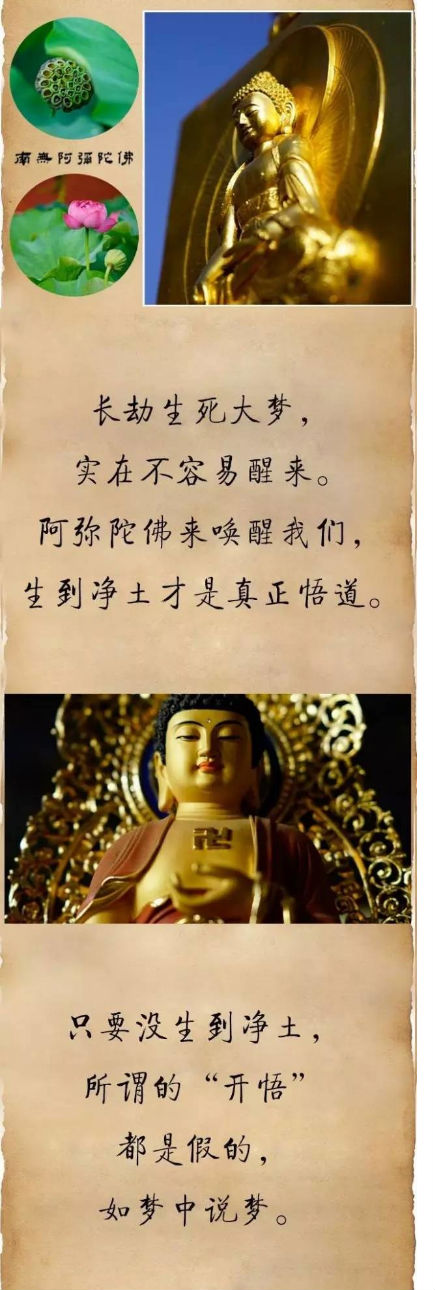 南無阿彌陀佛
长劫生死大梦，
实在不容易醒来。
阿弥陀佛来唤醒我们，
生到净土才是真正悟道。
卍
只要没生到净土，
所谓的“开悟”
都是假的，
如梦中说梦。